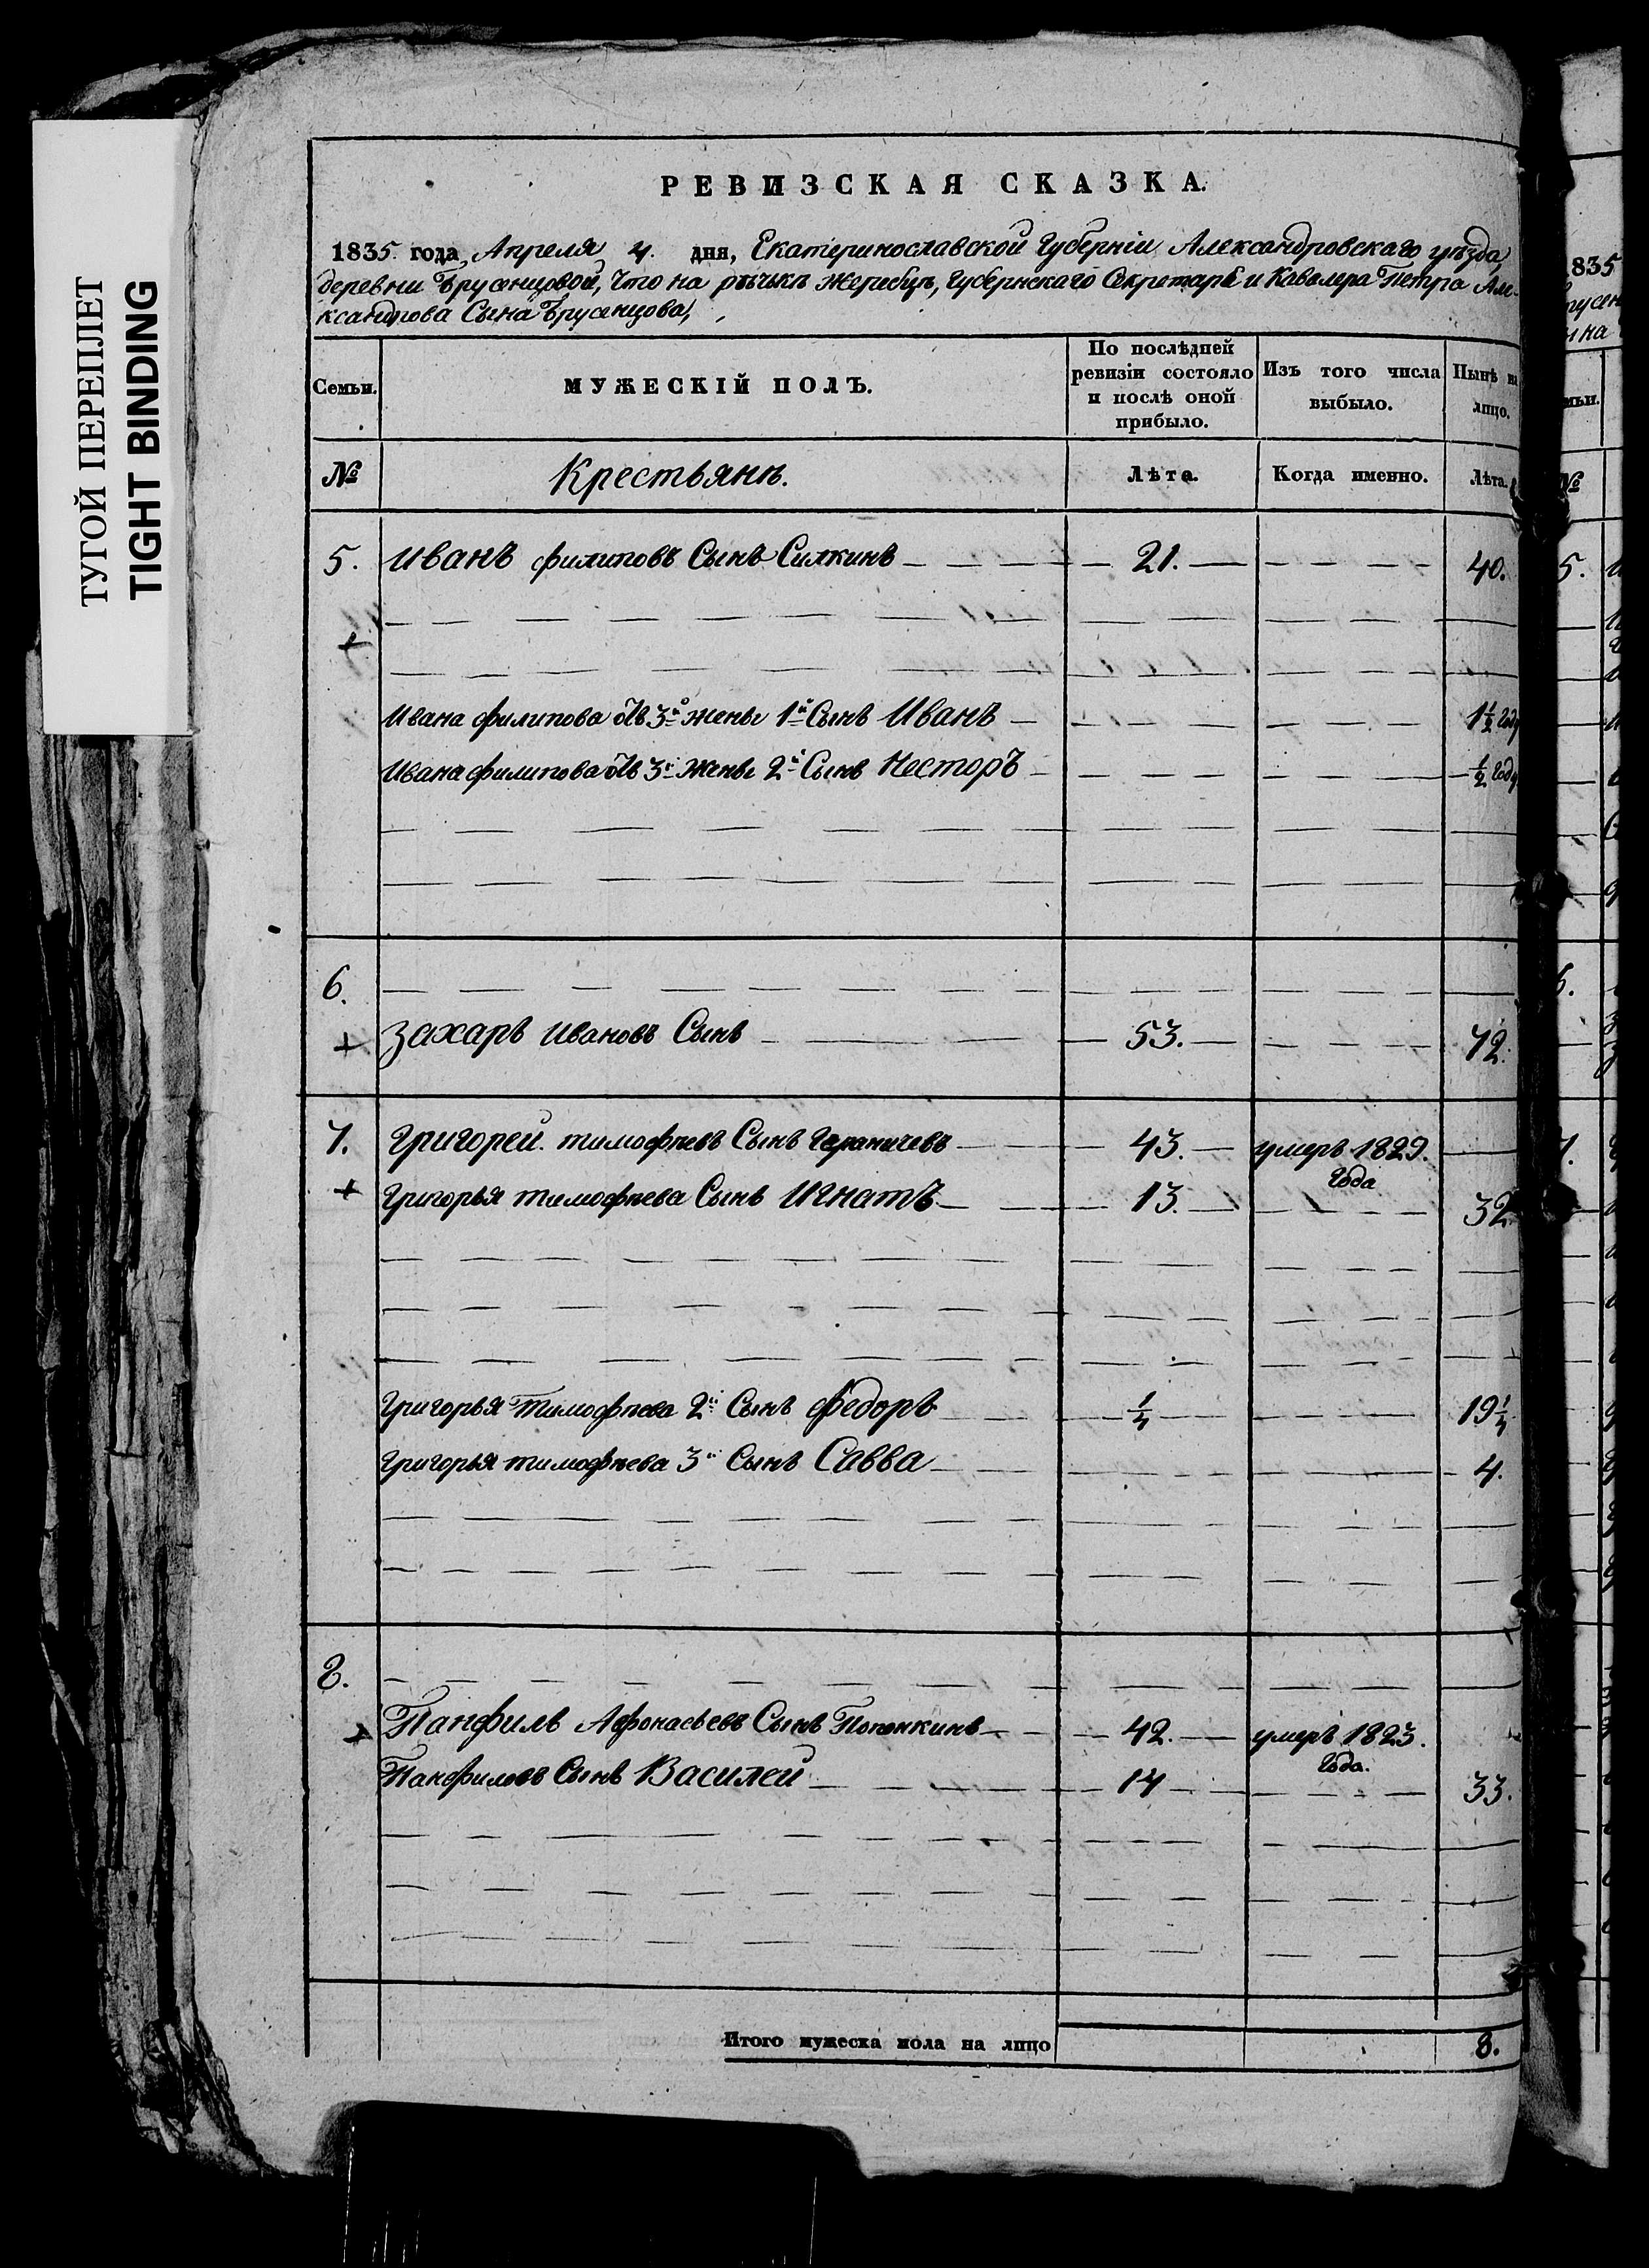 ТУГОЙ ПЕРЕПЛЕТ
TIGHT BINDING
РЕВИЗСКАЯ СКАЗКА.
1835. года, Апреля 4. дня, Екатеринославской Губерніи Александровскаго уѣзда,
деревни Брусенцовой, что на рѣчькѣ Жеребцѣ, Губернскаго Секретаря и Кавалера Петра Але-
ксандрова Сына Брусенцова,
Семьи. МУЖЕСКІЙ ПОЛЪ. По послѣдней ревизіи состояло и послѣ оной прибыло. Изъ того числа выбыло. Нынѣ на лицо.
№ Крестьянѣ. Лѣта. Когда именно. Лѣта.
5. Иванъ Филиповъ Сынъ Силкинъ 21. 40.
+
Ивана Филипова отъ 3й жены 1й Сынъ Иванъ 1½ году
Ивана Филипова отъ 3й жены 2й Сынъ Несторъ ½ году
6.
+ Захаръ Ивановъ Сынъ 53. 72.
7. Григорей Тимофѣевъ Сынъ 43. умеръ 1829. года
+ Григорья Тимофѣева Сынъ Игнатъ 13. 32.
Григорья Тимофѣева 2й Сынъ Федоръ ¼ 19¼
Григорья Тимофѣева 3й Сынъ Савва 4.
8.
+ Панфилъ Афонасьевъ Сынъ 42. умеръ 1823. года.
Панфиловъ Сынъ Василей 14 33.
Итого мужеска пола на лицо 8.
835
№
5.